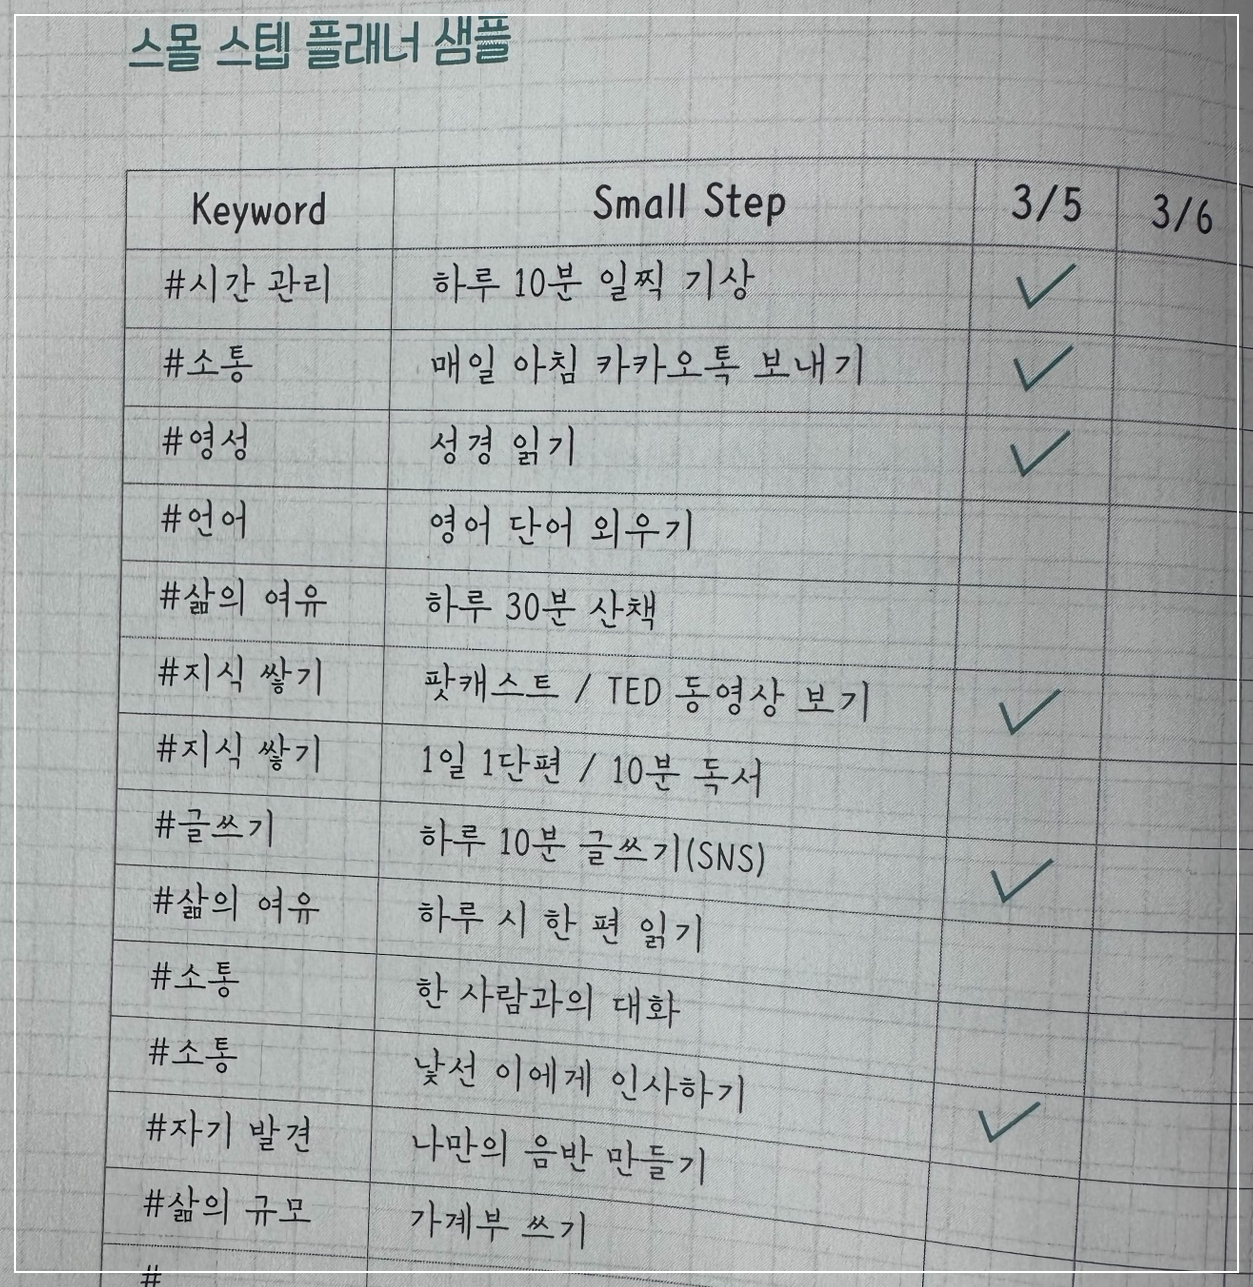 스몰 스텝 플래너 샘플
Keyword Small Step 3/5 3/6
#시간 관리 하루 10분 일찍 기상 ✓
#소통 매일 아침 카카오톡 보내기 ✓
#영성 성경 읽기 ✓
#언어 영어 단어 외우기
#삶의 여유 하루 30분 산책
#지식 쌓기 팟캐스트 / TED 동영상 보기 ✓
#지식 쌓기 1일 1단편 / 10분 독서
#글쓰기 하루 10분 글쓰기(SNS) ✓
#삶의 여유 하루 시 한 편 읽기
#소통 한 사람과의 대화
#소통 낯선 이에게 인사하기 ✓
#자기 발견 나만의 음반 만들기
#삶의 규모 가계부 쓰기
#